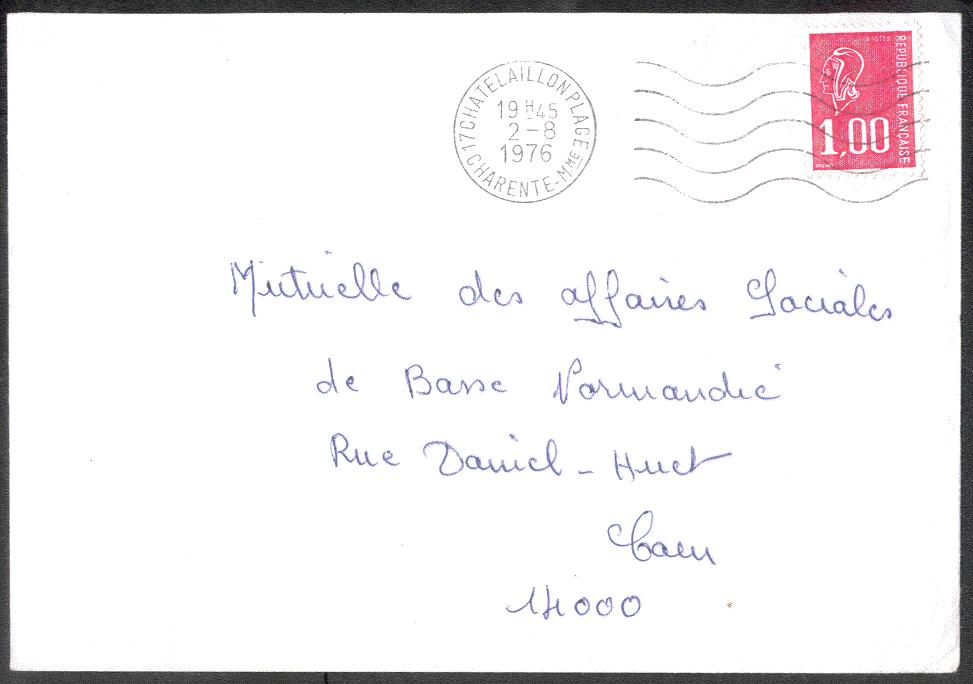 17 CHATELAILLON PLAGE
19H45
2-8
1976
CHARENTE-MME
REPUBLIQUE FRANÇAISE
POSTES
1,00
Mutuelle des affaires Sociales
de Basse Normandie
Rue Daniel-Huet
Caen
14000